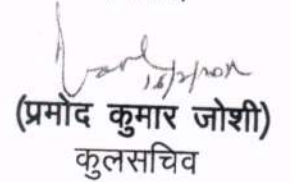 (प्रमोद कुमार जोशी)
कुलसचिव